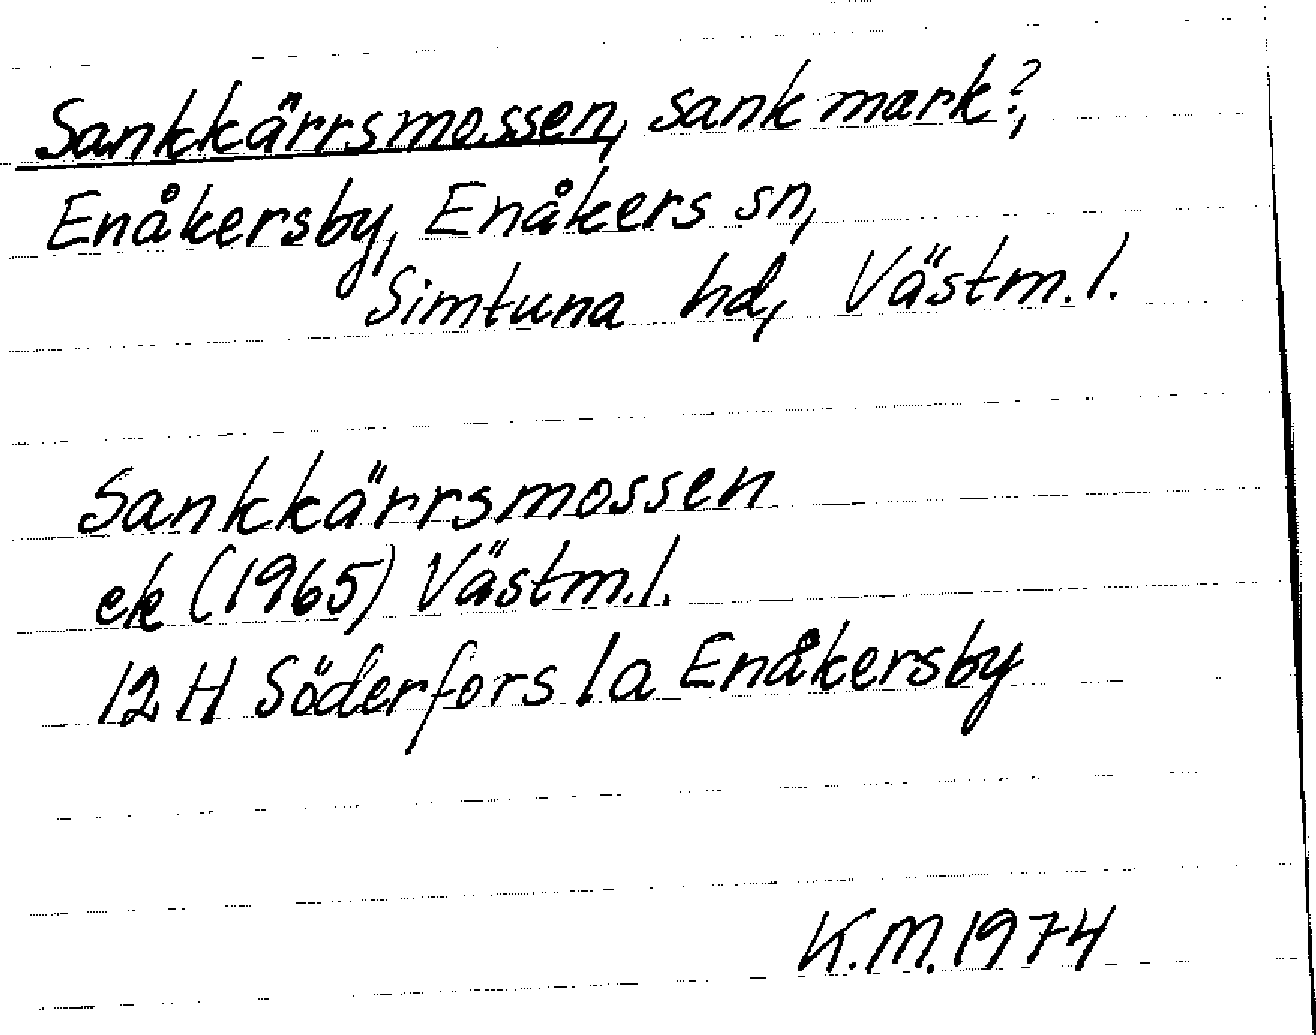 Sankkärrsmossen, sank mark?,
Enåkersby, Enåkers sn,
Simtuna hd, Västm.l.
Sankkärrsmossen
ek (1965) Västm.l.
12 H Söderfors 1a Enåkersby
K.M. 1974